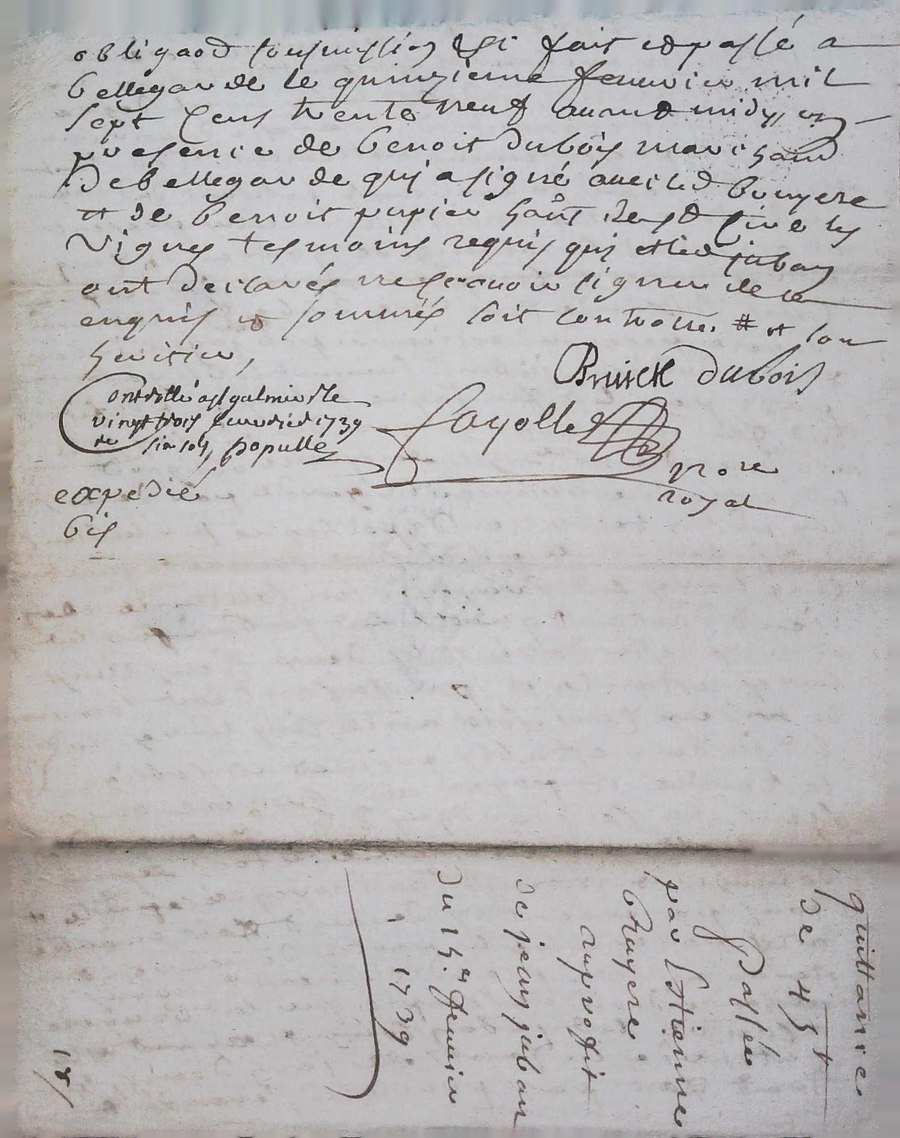 obligaõn soumission &c fait et passé a
bellegarde le quinzieme feuvrier mil
sept cens trente neuf auant midy, en
presence de benoit dubois marchand
de bellegarde qui a signé avec led bruyere
et de benoit pupier les
vignes tesmoins requis qui et led juban
ont declarés ne scavoir signer de ce
enquis et sommés soit controllé # et son
heritier,
Bruiere dubois
Controllé a st galmier le
vingt trois feuvrier 1739
Rc six sols, populle
fayolle
nore
royal
expedié
bis
quittance
de 45 ₶
Passée
par Estienne
bruyere
au profit
de jean juban
du 15.e feuvrier
1739.
18/